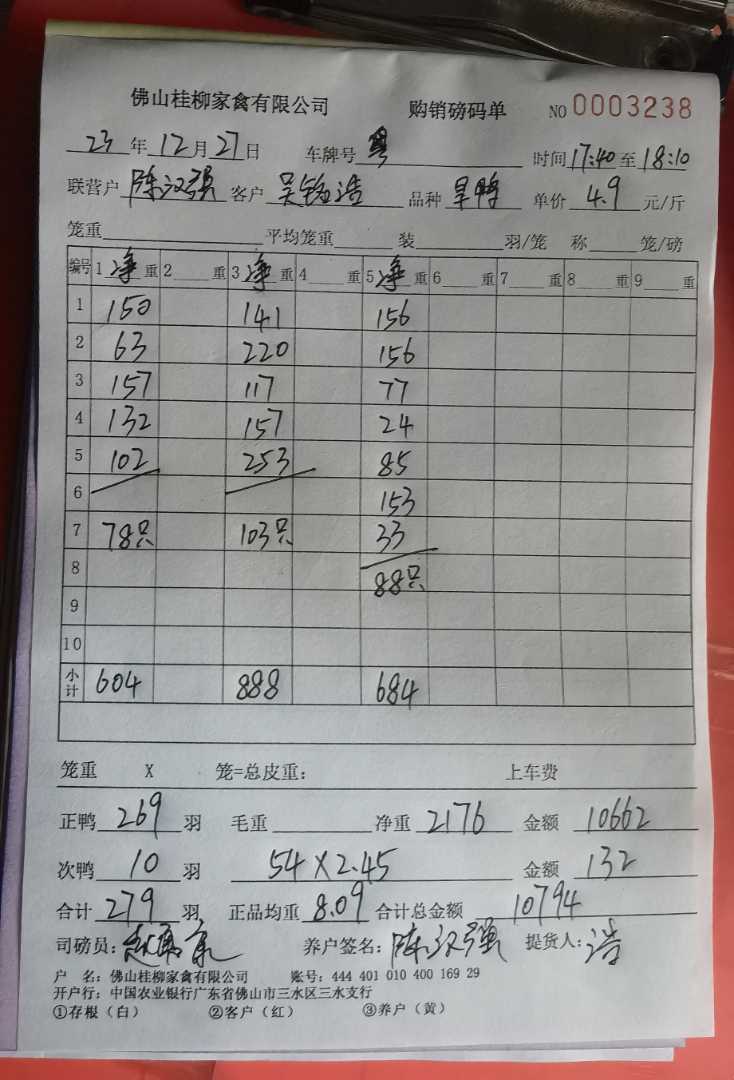 佛山桂柳家禽有限公司 购销磅码单 NO 0003238
23年12月27日 车牌号 粤 时间17:40至18:10
联营户 陈汉强 客户 品种 旱鸭 单价 4.9 元/斤
笼重 平均笼重 装 羽/笼 称 笼/磅
编号 1 净重 2 重 3 净重 4 重 5 净重 6 重 7 重 8 重 9 重
1 150 141 156
2 63 220 156
3 157 117 77
4 132 157 24
5 102 253 85
6 153
7 78只 103只 33
8 88只
9
10
小计 604 888 684
笼重 X 笼=总皮重: 上车费
正鸭 269 羽 毛重 净重 2176 金额 10662
次鸭 10 羽 54X2.45 金额 132
合计 279 羽 正品均重 8.09 合计总金额 10794
司磅员: 养户签名: 陈汉强 提货人: 浩
户 名: 佛山桂柳家禽有限公司 账号: 444 401 010 400 169 29
开户行: 中国农业银行广东省佛山市三水区三水支行
①存根(白) ②客户(红) ③养户(黄)